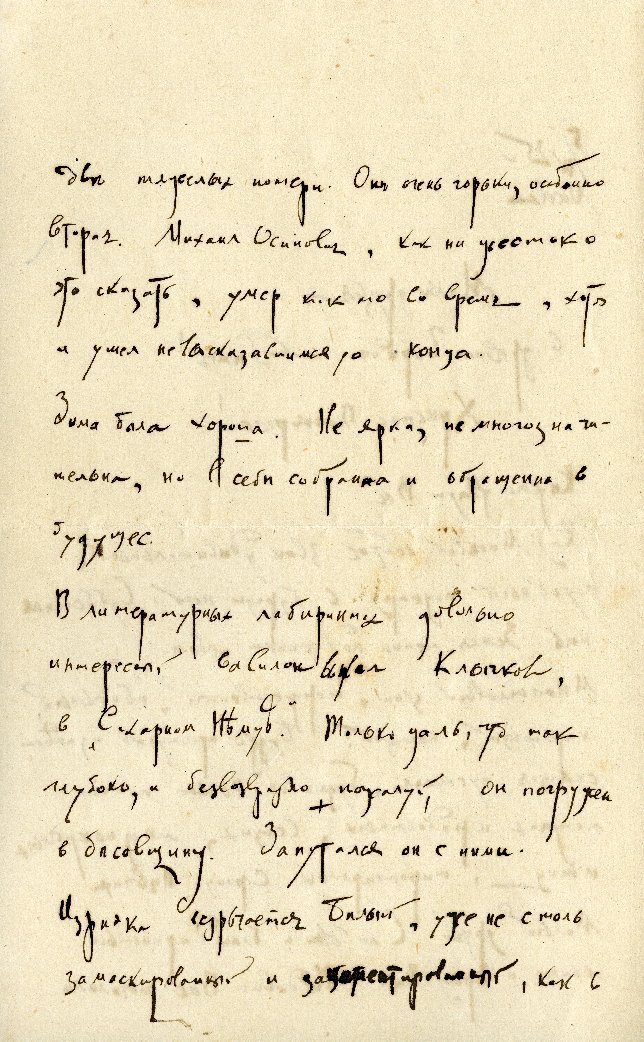 двѣ тяжелых потери. Онѣ очень горьки, особенно
вторая. Михаил Осипович, как ни жестоко
это сказать, умер как то во время, хотя
и ушел не высказавшимся до конца.
Зима была хороша. Не ярка, не многозначи-
тельна, но в себѣ собранна и обращенна в
будущее.
В литературных лабиринтах довольно
интересный Вавилон Клычков,
в „Сахарном Нѣмцѣ". Только жаль, что так
глубоко, и безвозвратно пожалуй, он погружен
в бѣсовщину. Запутался он с ними.
Изрѣдка встрѣчается Бѣлый, уже не столь
замаскированный и, как в